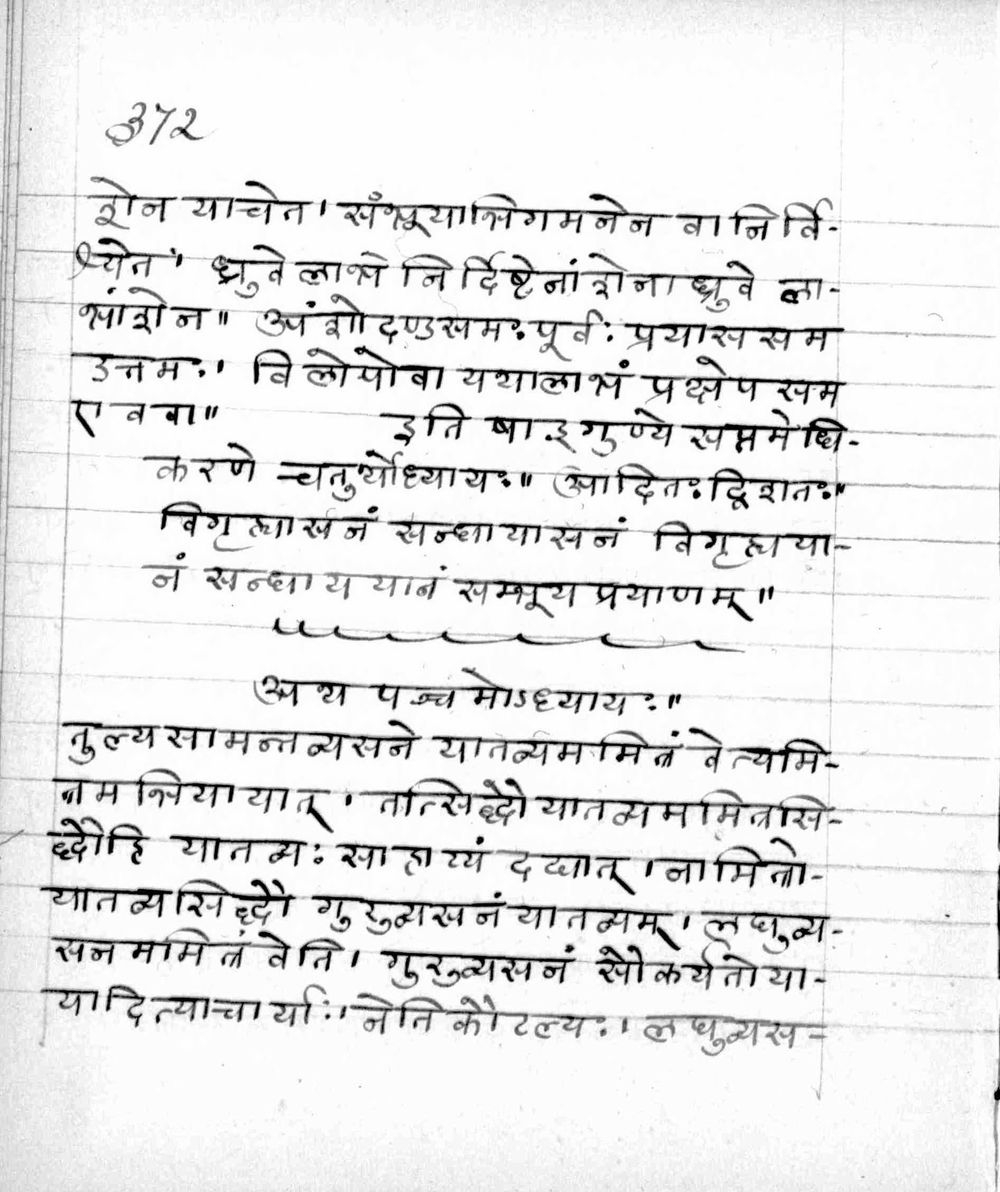 372
शेन याचेत। संभूयाभिगमनेन वा निर्वि-
श्येत। ध्रुवे लाभे निर्दिष्टेनांशेनाध्रुवे ला-
भांशेन॥ अंशोदण्डसमः पूर्वः प्रयाससम
उत्तमः। विलोपोवा यथालाभं प्रक्षेपसम
एववा॥ इति षाड्गुण्ये सप्तमेधि-
करणे चतुर्थोध्यायः॥ आदितः द्विशतः॥
विगृह्यासनं सन्धायासनं विगृह्यया-
नं सन्धाय यानं सम्भूय प्रयाणम्॥
अथ पञ्चमोऽध्यायः॥
तुल्यसामन्तव्यसने यातव्यममित्रं वेत्यमि-
त्रमभियायात्। तत्सिद्धौ यातव्यममित्रसि-
द्धौहि यातव्यः साहाय्यं दद्यात्। नामित्रो-
यातव्यसिद्धौ गुरुव्यसनं यातव्यम्। लघुव्य-
सनममित्रं वेति। गुरुव्यसनं सौकर्यतोया-
यादित्याचार्याः। नेति कौटल्यः। लघुव्यस-